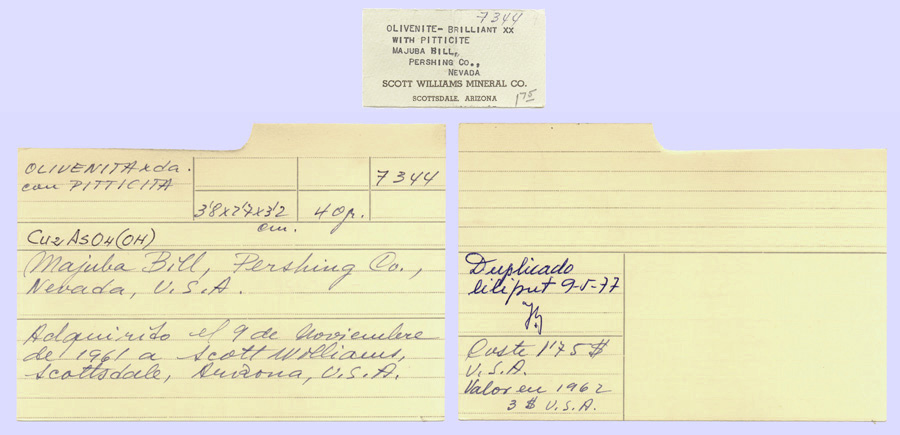 7344
OLIVENITE- BRILLIANT XX
WITH PITTICITE
MAJUBA HILL,
PERSHING CO.,
NEVADA
SCOTT WILLIAMS MINERAL CO.
SCOTTSDALE, ARIZONA
1 75
OLIVENITA xda.
con PITTICITA
7344
3'8x2'7x3'2
cm.
40 gr.
Cu2AsO4(OH)
Majuba Bill, Pershing Co.,
Nevada, U.S.A.
Adquirito el 9 de Noviembre
de 1961 a Scott Williams,
Scottsdale, Arizona, U.S.A.
Duplicado
liliput 9-5-77
Coste 1'75 $
U.S.A.
Valor en 1962
3 $ U.S.A.